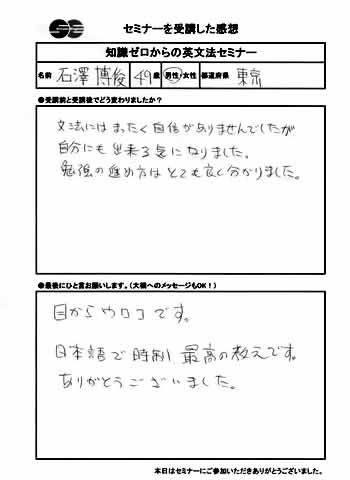 セミナーを受講した感想
知識ゼロからの英文法セミナー
名前 石澤 博俊 49歳 男性・女性 都道府県 東京
●受講前と受講後でどう変わりましたか？
文法にはまったく自信がありませんでしたが
自分にも出来る気になりました。
勉強の進め方はとても良く分かりました。
●最後にひと言お願いします。（大橋へのメッセージもOK！）
目からウロコです。
日本語で時制 最高の教えです。
ありがとうございました。
本日はセミナーにご参加いただきありがとうございました。